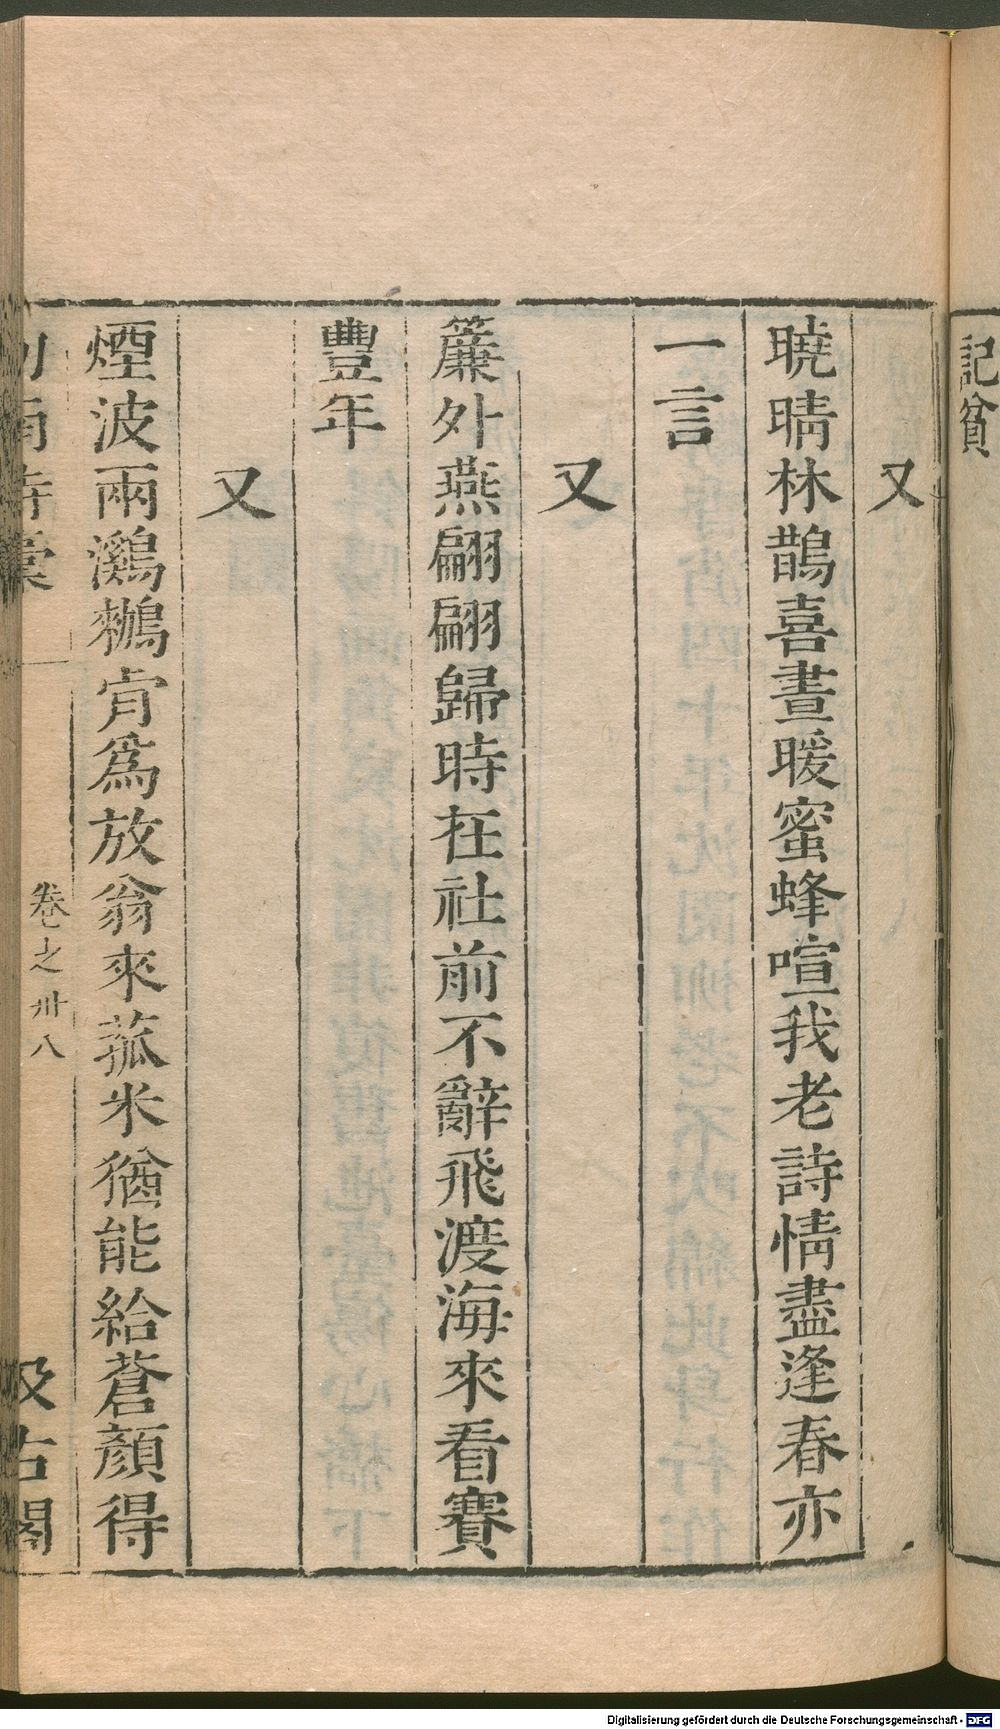 記貧
又
曉晴林鵲喜晝暖蜜蜂喧我老詩情盡逢春亦
一言
又
簾外燕翩翩歸時在社前不辭飛渡海來看賽
豐年
又
煙波兩鸂鶒肯爲放翁來菰米猶能給蒼顏得
卷之卅八
汲古閣
Digitalisierung gefördert durch die Deutsche Forschungsgemeinschaft - DFG